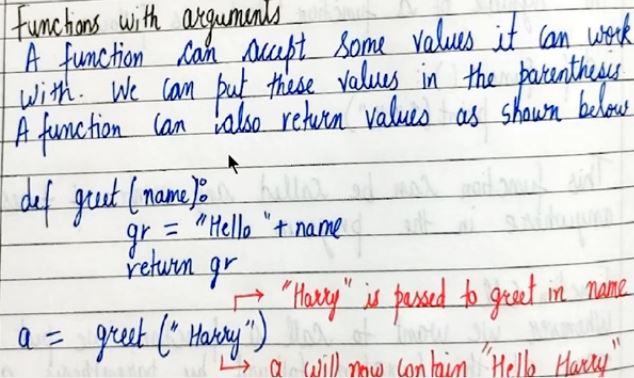 Functions with arguments
A function can accept some values it can work
with. We can put these values in the parenthesis.
A function can also return values as shown below
def greet (name):
gr = "Hello "+ name
return gr
"Harry" is passed to greet in name
a = greet (" Harry")
a will now contain "Hello Harry"